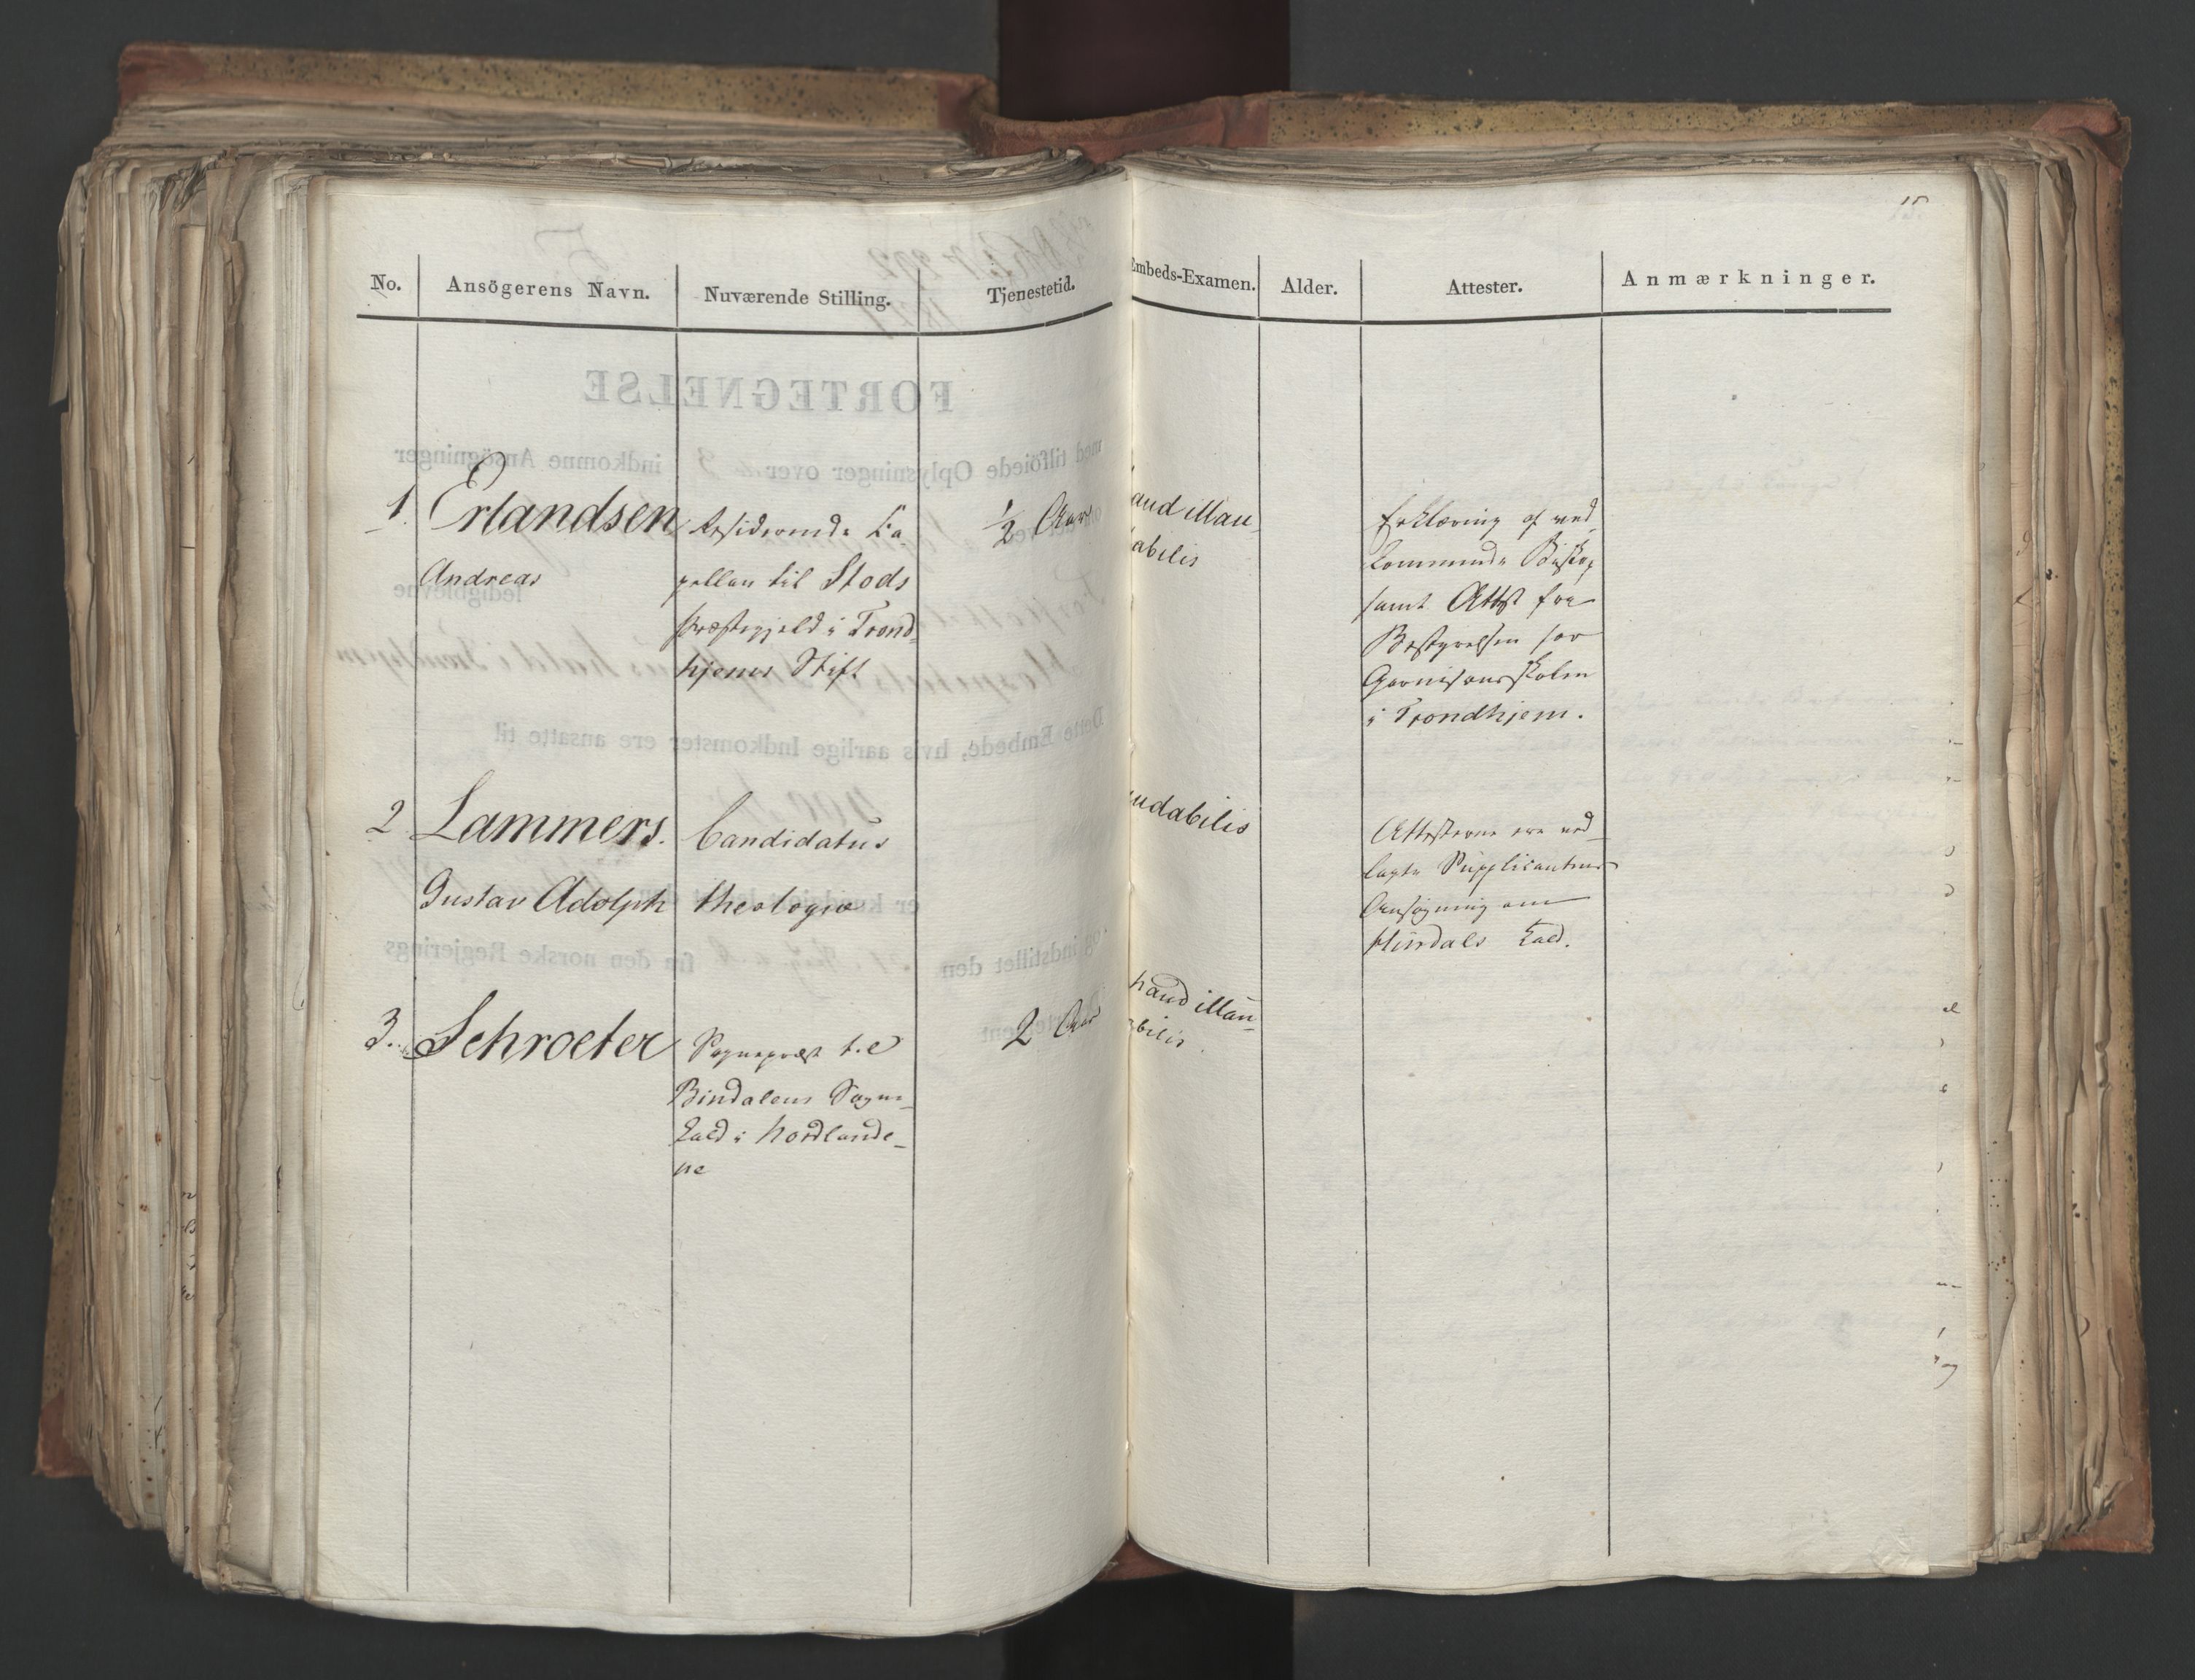 15
No. Ansögerens Navn. Nuværende Stilling. Tjenestetid. Embeds-Examen. Alder. Attester. Anmærkninger.
1. Erlandsen
Andreas
residerende Ca-
pellan til Stods
Præstegjeld i Trond-
hjems Stift
1/2 Aar
haud illau-
dabilis
Erklæring af ved-
kommende Biskop
samt Attest fra
Bestyrelsen for
Garnisonsskolen
i Trondhjem.
2 Lammers.
Gustav Adolph
Candidatus
theologiæ
laudabilis
Attesterne ere ved-
lagte Supplicantens
Ansøgning om
Kald.
3. Schroeter
Sognepræst til
Bindalens Sogne-
kald i Nordlande-
ne
2 Aar
haud illau-
dabilis